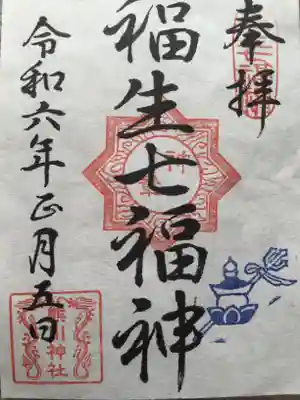 奉拝
福生七福神
令和六年正月五日
熊川神社